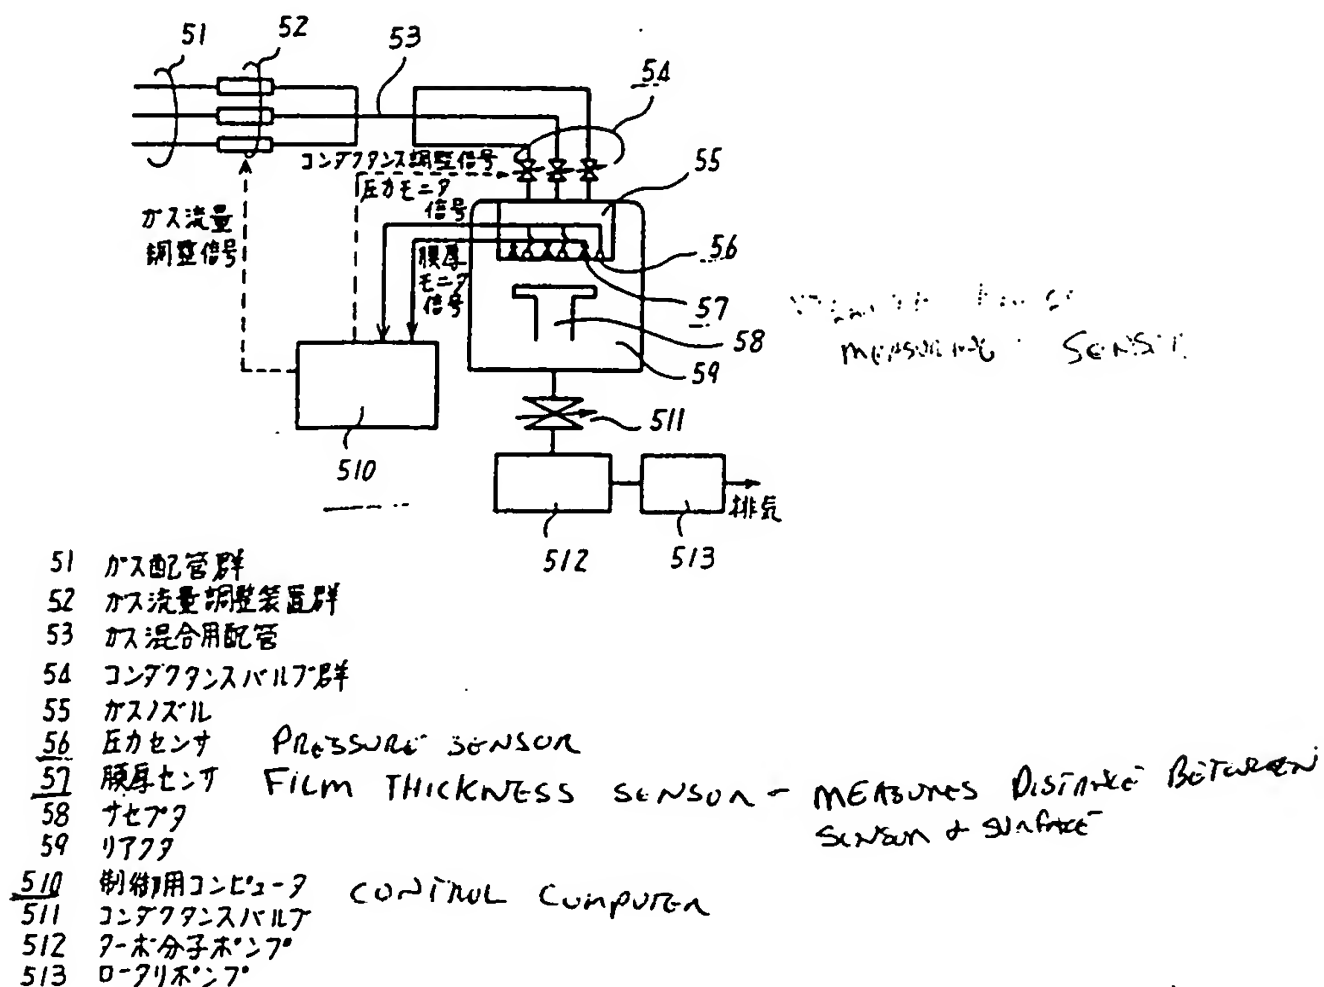 51
52
53
54
コンダクタンス調整信号
55
圧力モニタ
信号
ガス流量
調整信号
56
膜厚
モニタ
信号
57
58
MEASURING SENSOR
59
511
510
排気
512
513
51 ガス配管群
52 ガス流量調整装置群
53 ガス混合用配管
54 コンダクタンスバルブ群
55 ガスノズル
56 圧力センサ PRESSURE SENSOR
57 膜厚センサ FILM THICKNESS SENSOR - MEASURES DISTANCE BETWEEN
SENSOR & SURFACE
58 サセプタ
59 リアクタ
510 制御用コンピュータ CONTROL COMPUTER
511 コンダクタンスバルブ
512 ターボ分子ポンプ
513 ロータリポンプ